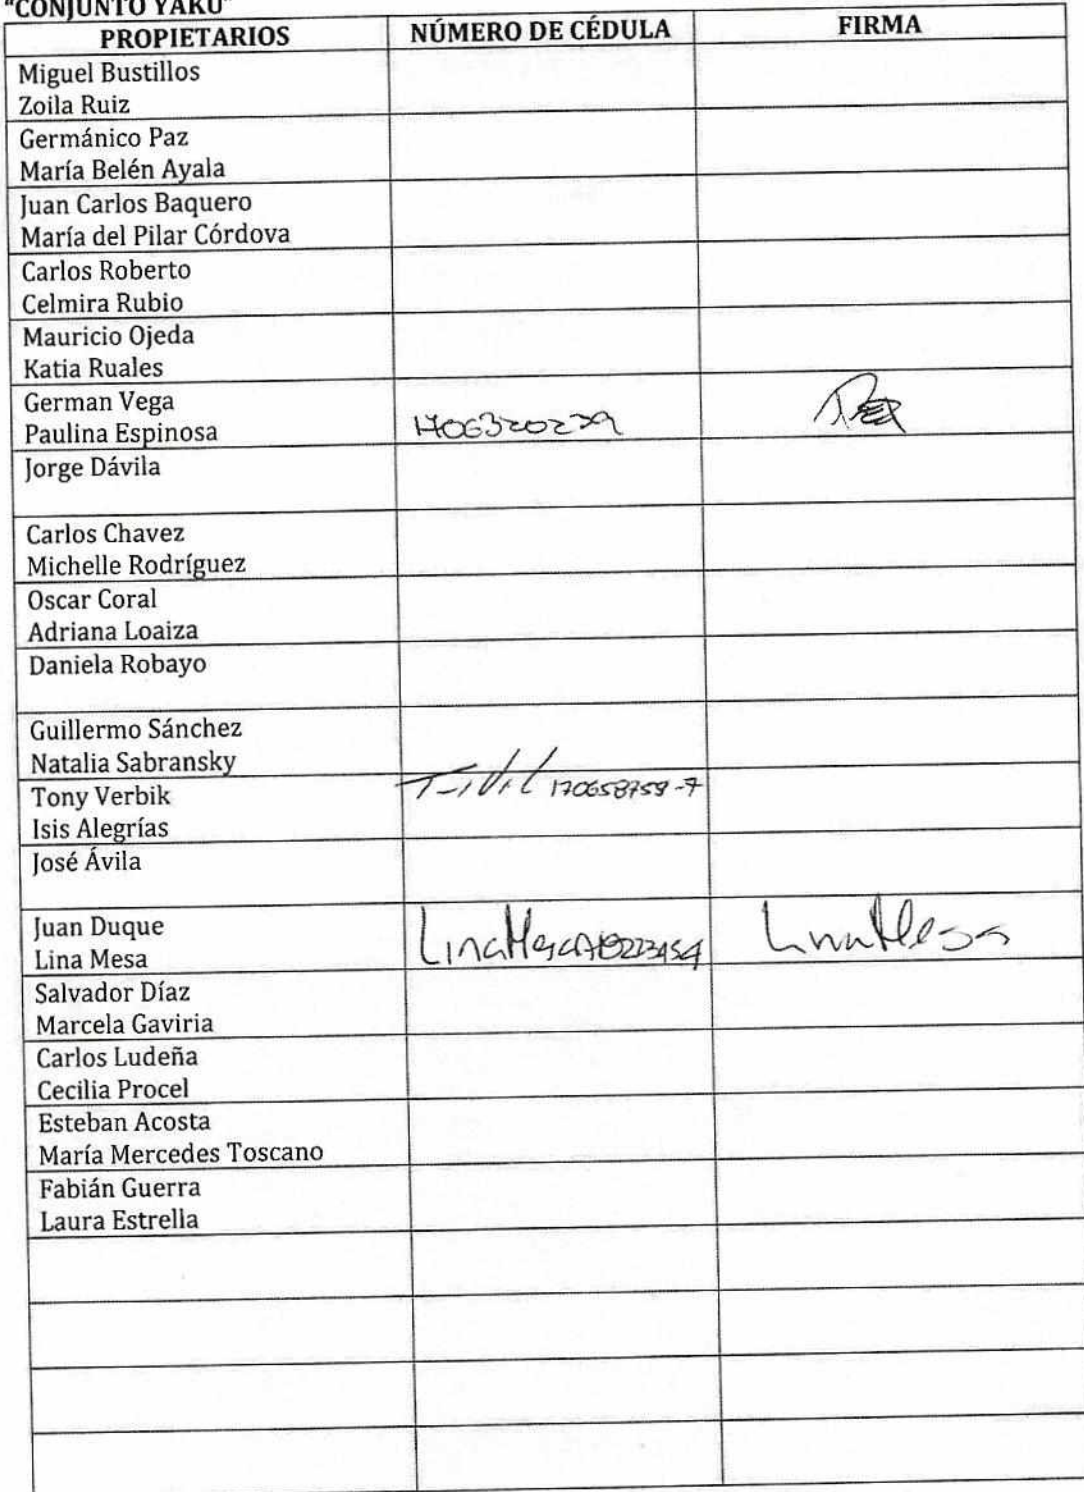 "CONJUNTO YAKU"
PROPIETARIOS NÚMERO DE CÉDULA FIRMA
Miguel Bustillos
Zoila Ruiz
Germánico Paz
María Belén Ayala
Juan Carlos Baquero
María del Pilar Córdova
Carlos Roberto
Celmira Rubio
Mauricio Ojeda
Katia Ruales
German Vega
Paulina Espinosa 1706320279
Jorge Dávila
Carlos Chavez
Michelle Rodríguez
Oscar Coral
Adriana Loaiza
Daniela Robayo
Guillermo Sánchez
Natalia Sabransky
Tony Verbik 170658759-7
Isis Alegrías
José Ávila
Juan Duque
Lina Mesa Lina Mesa Lina Mesa
Salvador Díaz
Marcela Gaviria
Carlos Ludeña
Cecilia Procel
Esteban Acosta
María Mercedes Toscano
Fabián Guerra
Laura Estrella